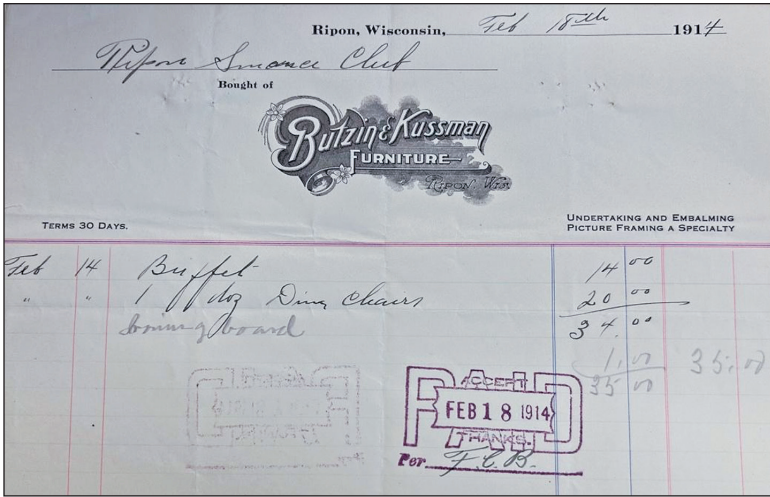 Ripon, Wisconsin, Feb 18th 1914
Ripon Club
Bought of
Butzin & Kussman
FURNITURE
RIPON, WIS.
TERMS 30 DAYS.
UNDERTAKING AND EMBALMING
PICTURE FRAMING A SPECIALTY
Feb 14 Buffet 14 00
" " 1 doz Ding Chairs 20 00
34.00
Ironing board 1.00 35.00
35 00
PAID
ACCEPT
FEB 18 1914
THANKS.
Per F.C.B.